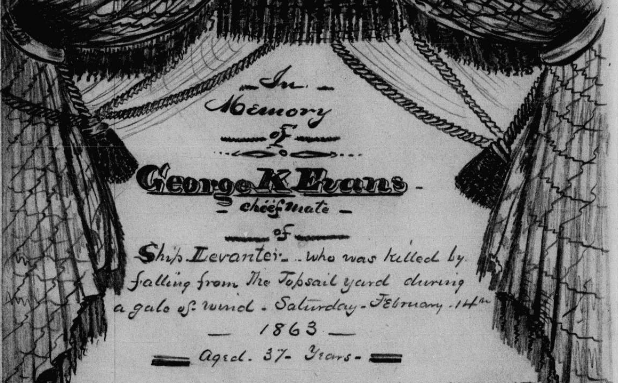 In
Memory
of
George K Evans
cheef mate
of
Ship Levanter - who was killed by
falling from the Topsail yard during
a gale of wind - Saturday - February - 14th
1863
Aged - 37 - Years -